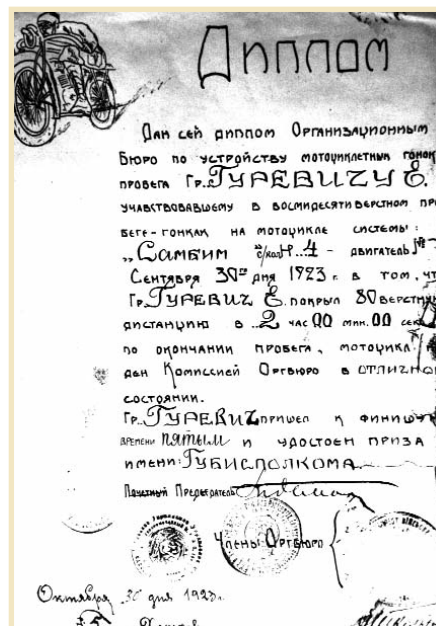 Диплом
Дан сей диплом Организационным
Бюро по устройству мотоциклетных гонок
пробега Гр. ГУРЕВИЧУ Е.
учавствовавшему в восмидесятиверстном про
беге-гонках на мотоцикле системы:
„Самбим с/кол. 4 - двигатель №
Сентября 30го дня 1923 г. в том, что
Гр. ГУРЕВИЧ Е. покрыл 80 верстную
дистанцию в 2 час 00 мин. 00 сек
по окончании пробега, мотоцикл
ден Комиссией Оргбюро в отлично
состоянии.
Гр. ГУРЕВИЧ пришел к финишу
времени пятым и удостоен приза
имени: Губисполкома
Почетный Председатель
Члены Оргбюро
Октября 30 дня 1923 г.